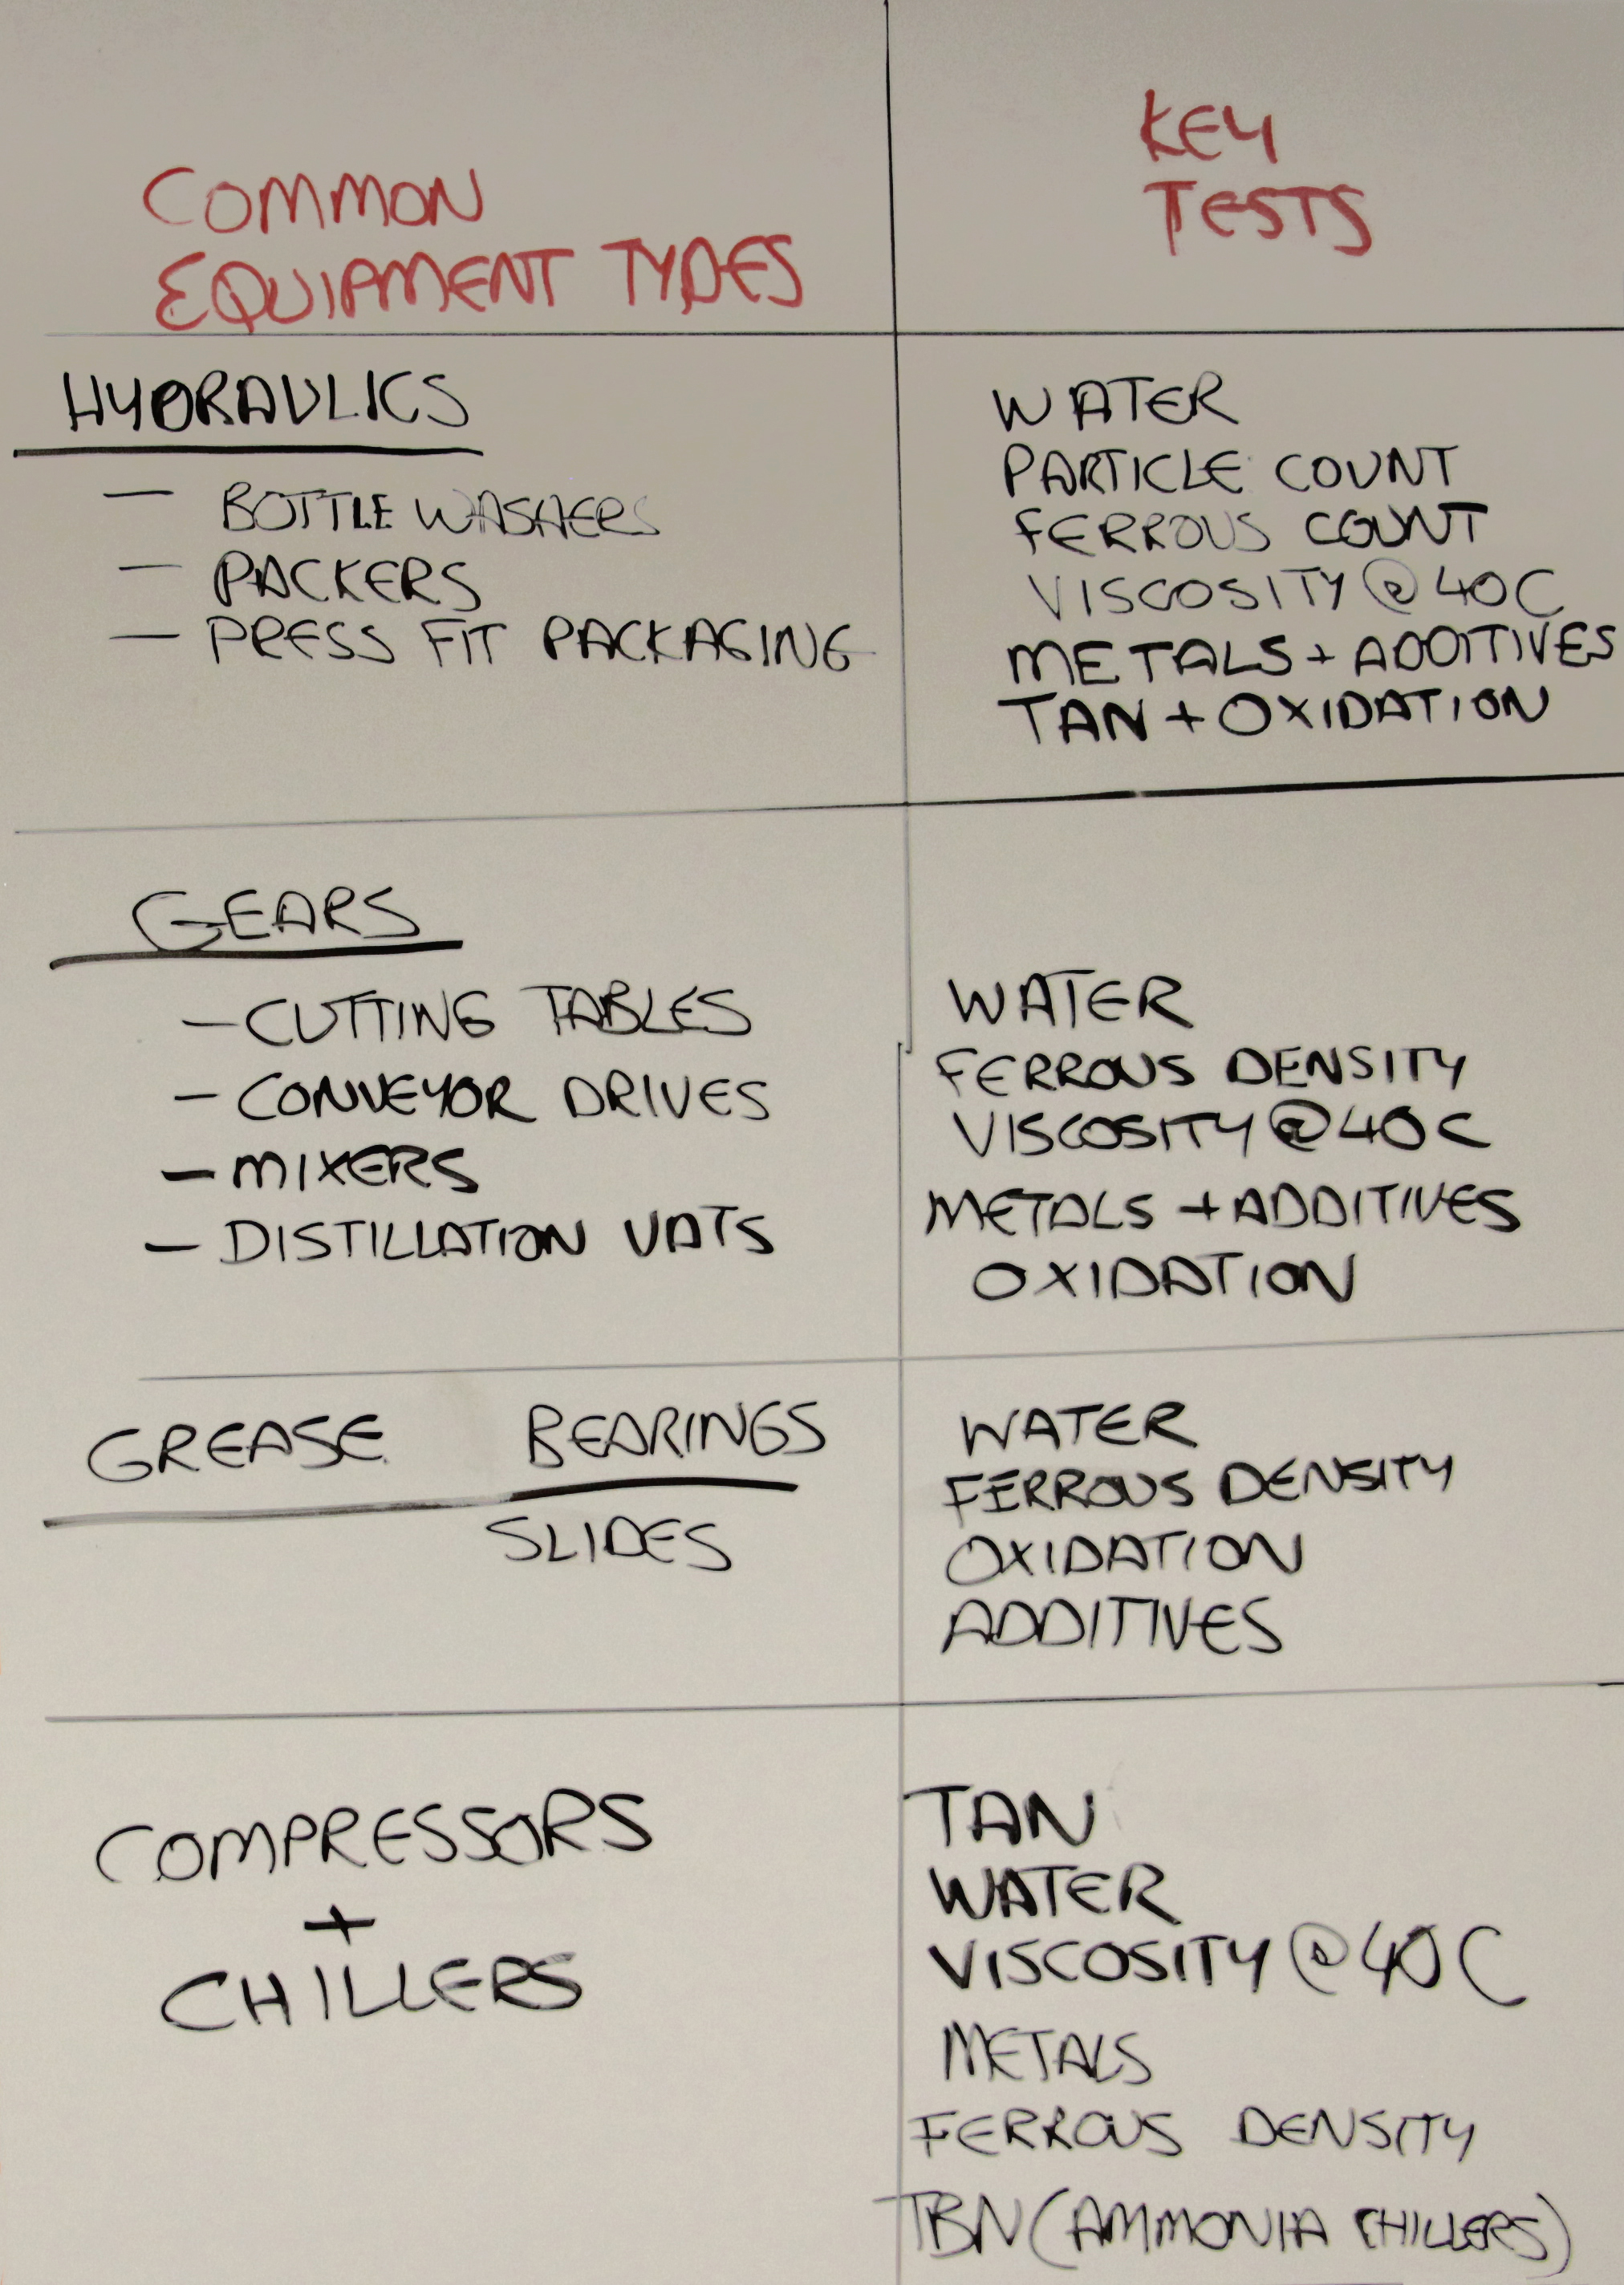 COMMON
EQUIPMENT TYPES
KEY
TESTS
HYDRAULICS
— BOTTLE WASHERS
— PACKERS
— PRESS FIT PACKAGING
WATER
PARTICLE COUNT
FERROUS COUNT
VISCOSITY @ 40C
METALS + ADDITIVES
TAN + OXIDATION
GEARS
— CUTTING TABLES
— CONVEYOR DRIVES
— MIXERS
— DISTILLATION VATS
WATER
FERROUS DENSITY
VISCOSITY @ 40C
METALS + ADDITIVES
OXIDATION
GREASE BEARINGS
SLIDES
WATER
FERROUS DENSITY
OXIDATION
ADDITIVES
COMPRESSORS
+
CHILLERS
TAN
WATER
VISCOSITY @ 40C
METALS
FERROUS DENSITY
TBN (AMMONIA CHILLERS)